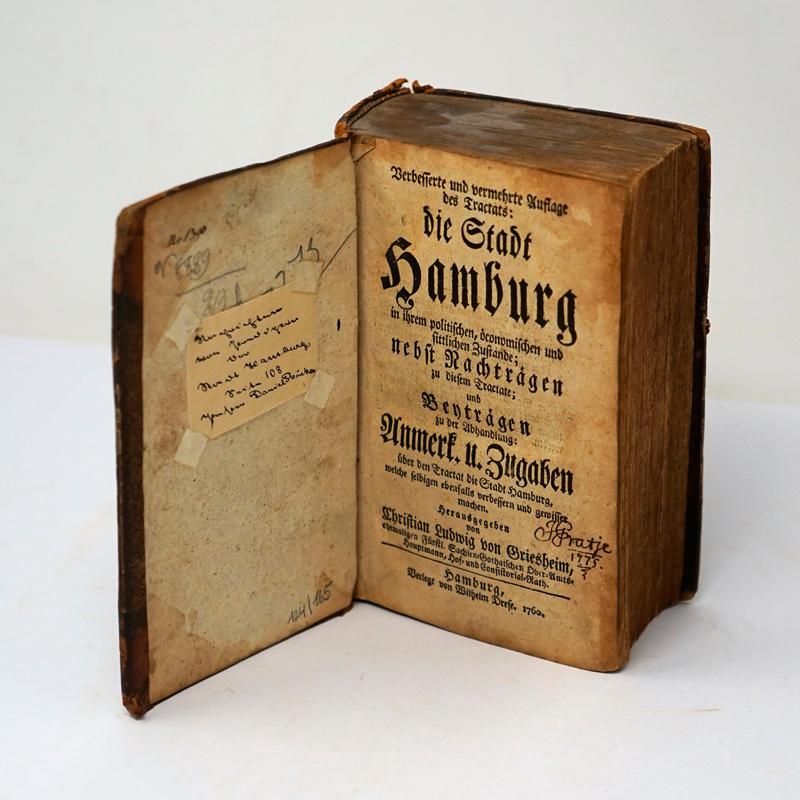 No 1889
Stadt Hamburg.
Seite 108
124/165
Verbesserte und vermehrte Auflage
des Tractats:
die Stadt
Hamburg
in ihrem politischen, öconomischen und
sittlichen Zustande;
nebst Nachträgen
zu diesem Tractate;
und
Beyträgen
zu der Abhandlung:
Anmerk. u. Zugaben
über den Tractat die Stadt Hamburg,
welche selbigen ebenfalls verbessern und gewisser
machen.
Herausgegeben
von
Christian Ludwig von Griesheim,
ehemaligen Fürstl. Sachsen-Gothaischen Ober-Amts-
Hauptmann, Hof- und Consistorial-Rath.
Hamburg,
Verlegt von Wilhelm Drese, 1760.
Pratje
1775.